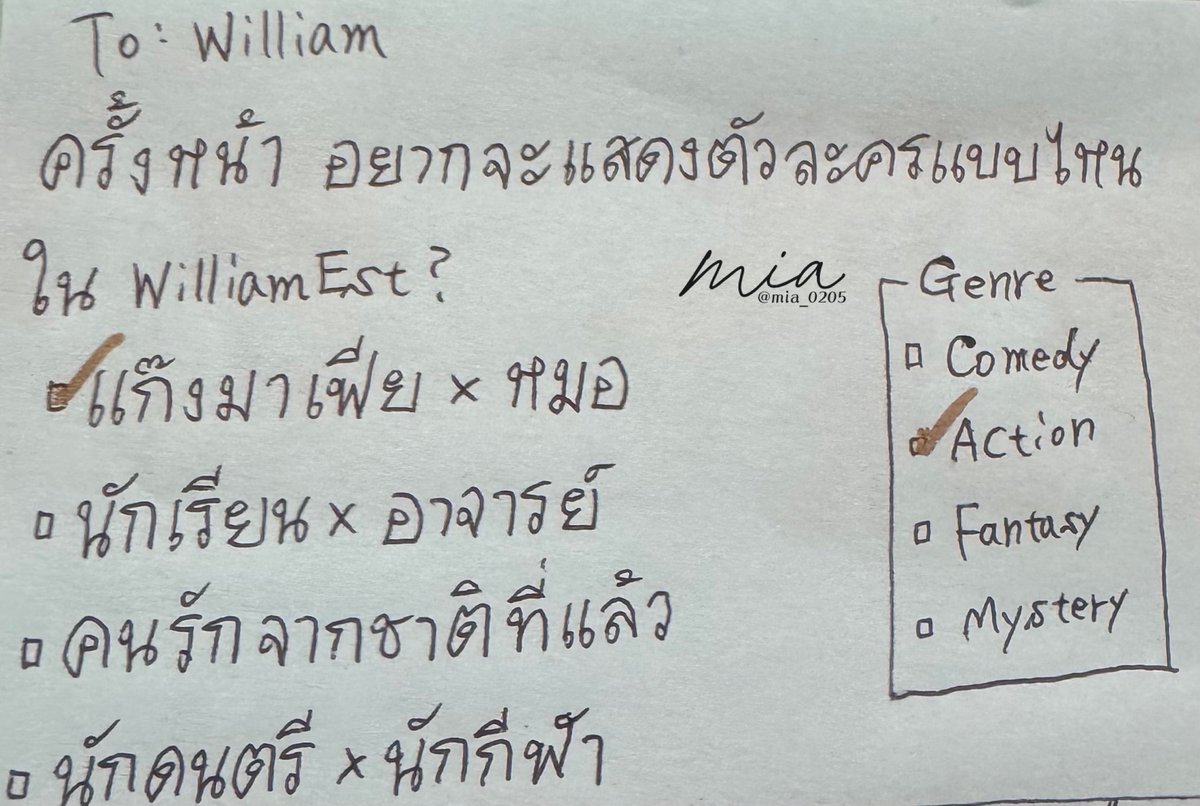 To: William
ครั้งหน้า อยากจะแสดงตัวละครแบบไหน
ใน WilliamEst?
mia
@mia_0205
แก๊งมาเฟีย × หมอ
นักเรียน × อาจารย์
คนรักจากชาติที่แล้ว
นักดนตรี × นักกีฬา
Genre
Comedy
Action
Fantasy
Mystery